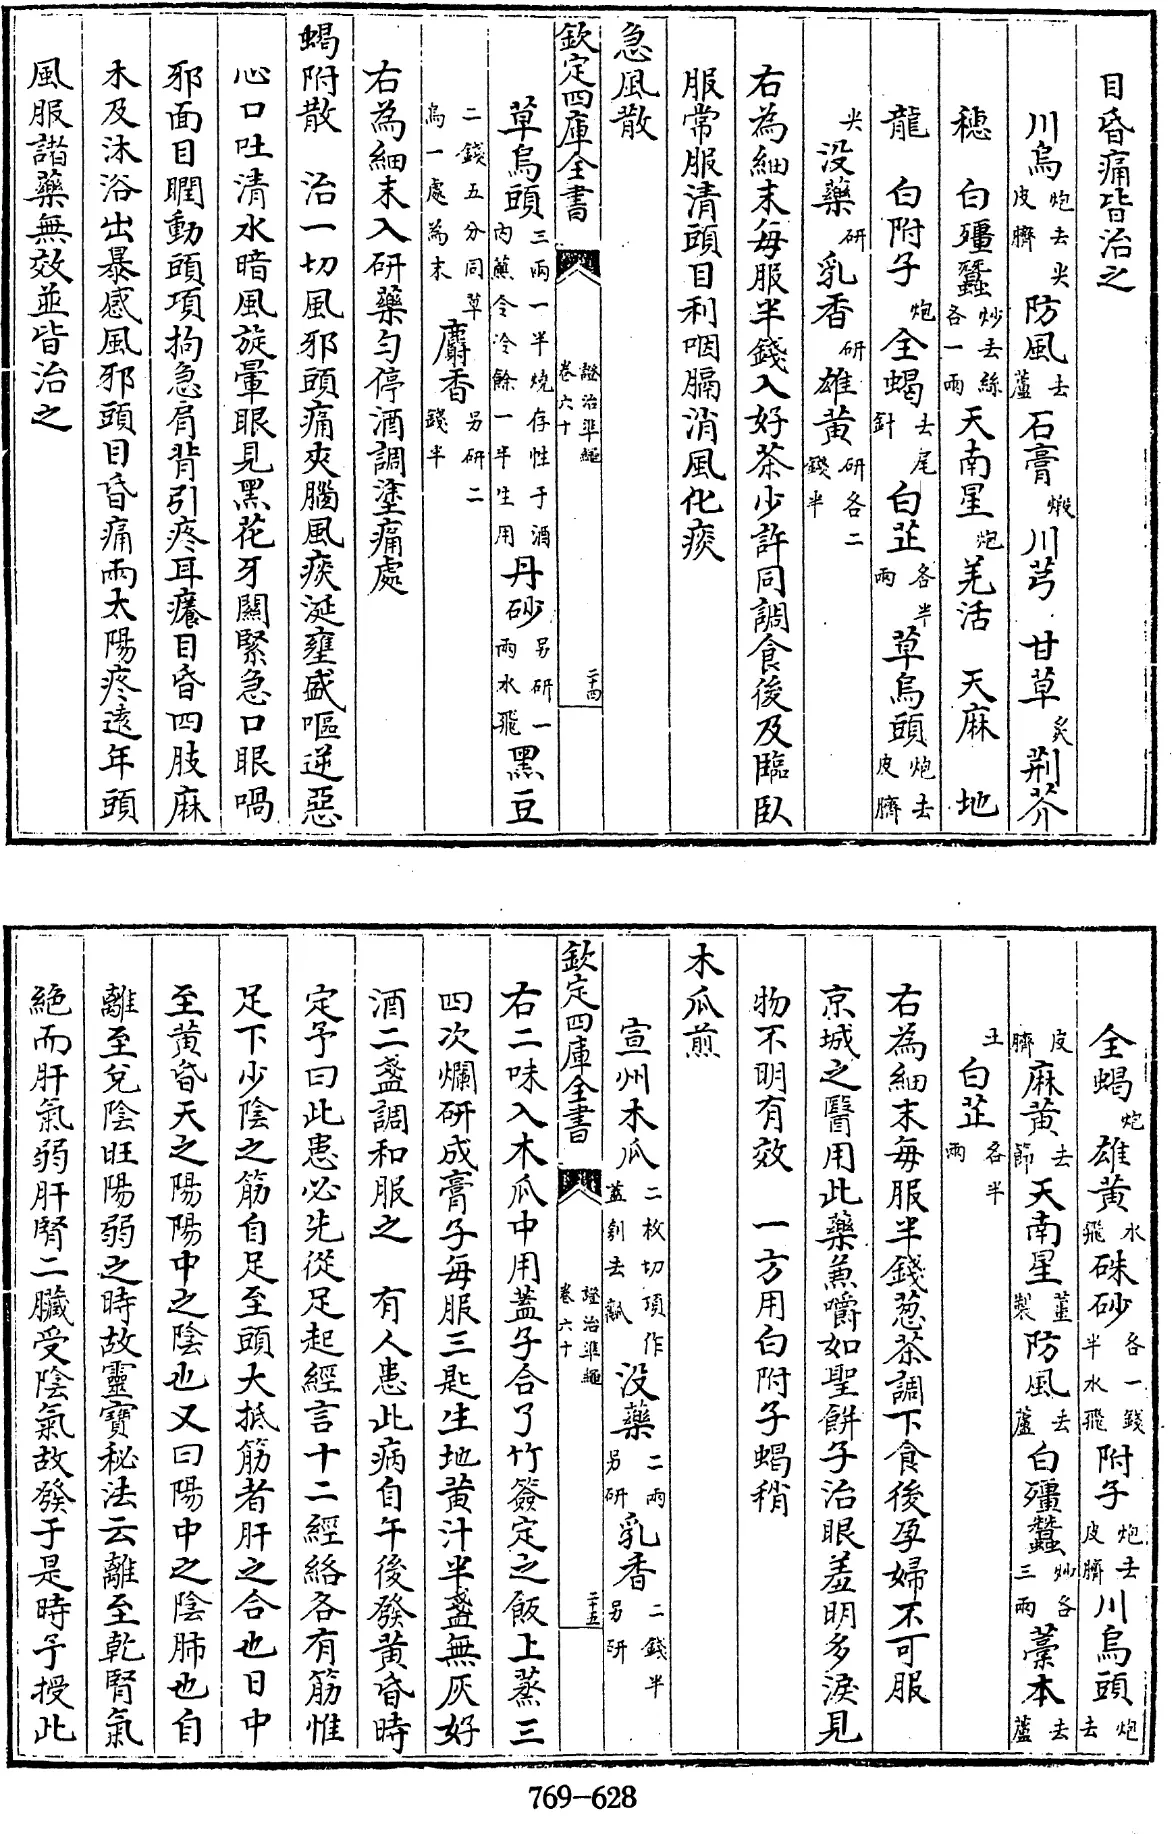 目昏痛皆治之
川烏炮去尖皮臍防風去蘆石膏煅川芎 甘草炙荆芥
穗 白殭蠶炒去絲各一兩天南星炮羌活 天麻 地
龍 白附子炮全蝎去尾針白芷各半兩草烏頭炮去皮臍
尖没藥研乳香研雄黄研各二錢半
右為細末每服半錢入好茶少許同調食後及臨臥
服常服清頭目利咽膈消風化痰
急風散
欽定四庫全書 證治準繩卷六十 二十四
草烏頭三兩一半燒存性于酒内蘸令冷餘一半生用丹砂另研一兩水飛黑豆
二錢五分同草烏一處為末麝香另研二錢半
右為細末入研藥勻停酒調塗痛處
蝎附散 治一切風邪頭痛夾腦風痰涎壅盛嘔逆惡
心口吐清水暗風旋暈眼見黑花牙關緊急口眼喎
邪面目瞤動頭項拘急肩背引疼耳癢目昏四肢麻
木及沐浴出暴感風邪頭目昏痛兩太陽疼遠年頭
風服諸藥無效並皆治之
全蝎炮雄黄水飛硃砂各一錢半水飛附子炮去皮臍川烏頭炮去
皮臍麻黄去節天南星薑製防風去蘆白殭蠶炒各三兩藁本去蘆
土白芷各半兩
右為細末每服半錢葱茶調下食後孕婦不可服
京城之醫用此藥兼嚼如聖餅子治眼羞明多淚見
物不明有效 一方用白附子蝎稍
木瓜煎
宣州木瓜二枚切頂作蓋剜去瓤没藥二兩另研乳香二錢半另研
欽定四庫全書 證治準繩卷六十 二十五
右二味入木瓜中用蓋子合了竹簽定之飯上蒸三
四次爛研成膏子每服三匙生地黄汁半盞無灰好
酒二盞調和服之 有人患此病自午後發黄昏時
定予曰此患必先從足起經言十二經絡各有筋惟
足下少陰之筋自足至頭大抵筋者肝之合也日中
至黄昏天之陽陽中之陰也又曰陽中之陰肺也自
離至兌陰旺陽弱之時故靈寶秘法云離至乾腎氣
絶而肝氣弱肝腎二臟受陰氣故發于是時予授此
769-628